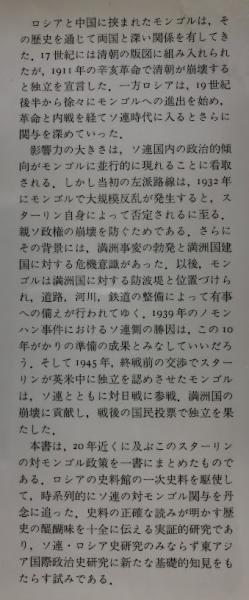 ロシアと中国に挟まれたモンゴルは，そ
の歴史を通じて両国と深い関係を有してき
た．17世紀には清朝の版図に組み入れられ
たが，1911年の辛亥革命で清朝が崩壊する
と独立を宣言した．一方ロシアは，19世紀
後半から徐々にモンゴルへの進出を始め，
革命と内戦を経てソ連時代に入るとさらに
関与を深めていった．
影響力の大きさは，ソ連国内の政治的傾
向がモンゴルに並行的に現れることに看取
される．しかし当初の左派路線は，1932年
にモンゴルで大規模反乱が発生すると，ス
ターリン自身によって否定されるに至る．
親ソ政権の崩壊を防ぐためである．さらに
その背景には，満洲事変の勃発と満洲国建
国に対する危機意識があった．以後，モン
ゴルは満洲国に対する防波堤と位置づけら
れ，道路，河川，鉄道の整備によって有事
への備えが行われてゆく．1939年のノモン
ハン事件におけるソ連側の勝因は，この10
年がかりの準備の成果とみなしていいだろ
う．そして1945年，終戦前の交渉でスター
リンが英米中に独立を認めさせたモンゴル
は，ソ連とともに対日戦に参戦，満洲国の
崩壊に貢献し，戦後の国民投票で独立を果
たした．
本書は，20年近くに及ぶこのスターリン
の対モンゴル政策を一書にまとめたもので
ある．ロシアの史料館の一次史料を駆使し
て，時系列的にソ連の対モンゴル関与を丹
念に追った．史料の正確な読みが明かす歴
史の醍醐味を十全に伝える実証的研究であ
り，ソ連・ロシア史研究のみならず東アジ
ア国際政治史研究に新たな基礎的知見をも
たらす試みである．